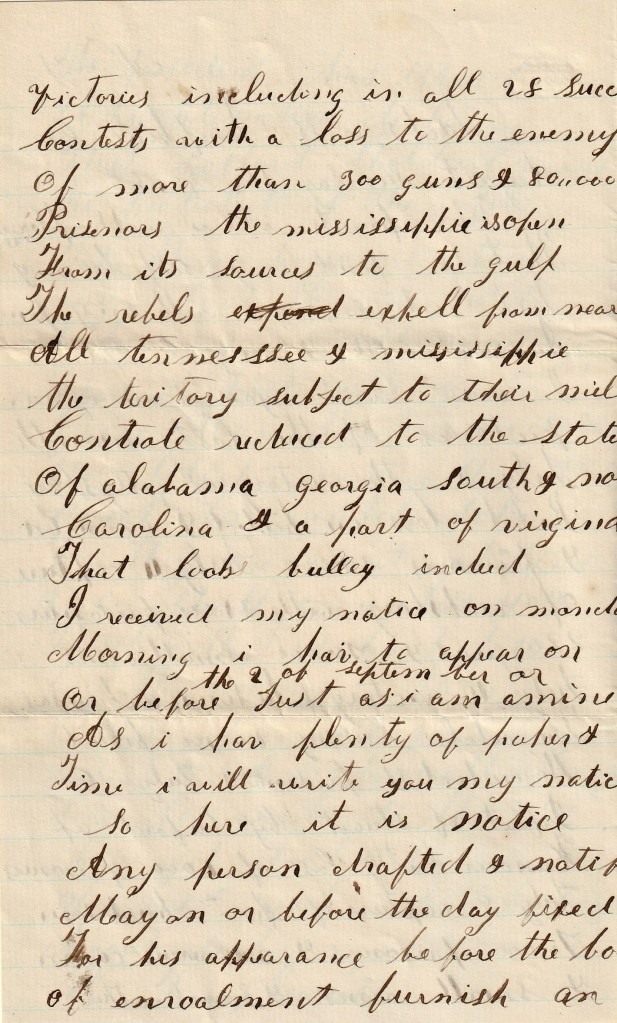 Victories including in all 28 Succ
Contests with a loss to the enemy
Of more than 300 guns & 80,000
Prisenors the mississippie is open
From its sources to the gulf
The rebels expend exhell from near
All tennesssee & mississippie
the teritory subject to their mil
Controle reduced to the state
Of alabama georgia south & no
Carolina & a part of virgina
That looks bulley indeed
I received my notice on mond
Morning i hav to appear on
the 2 of september or
Or before Just as i am a mine
As i hav plenty of paper &
Time i will write you my notic
So here it is notice
Any person drafted & notif
May on or before the day fixed
For his appearance before the bo
of enroalment furnish an